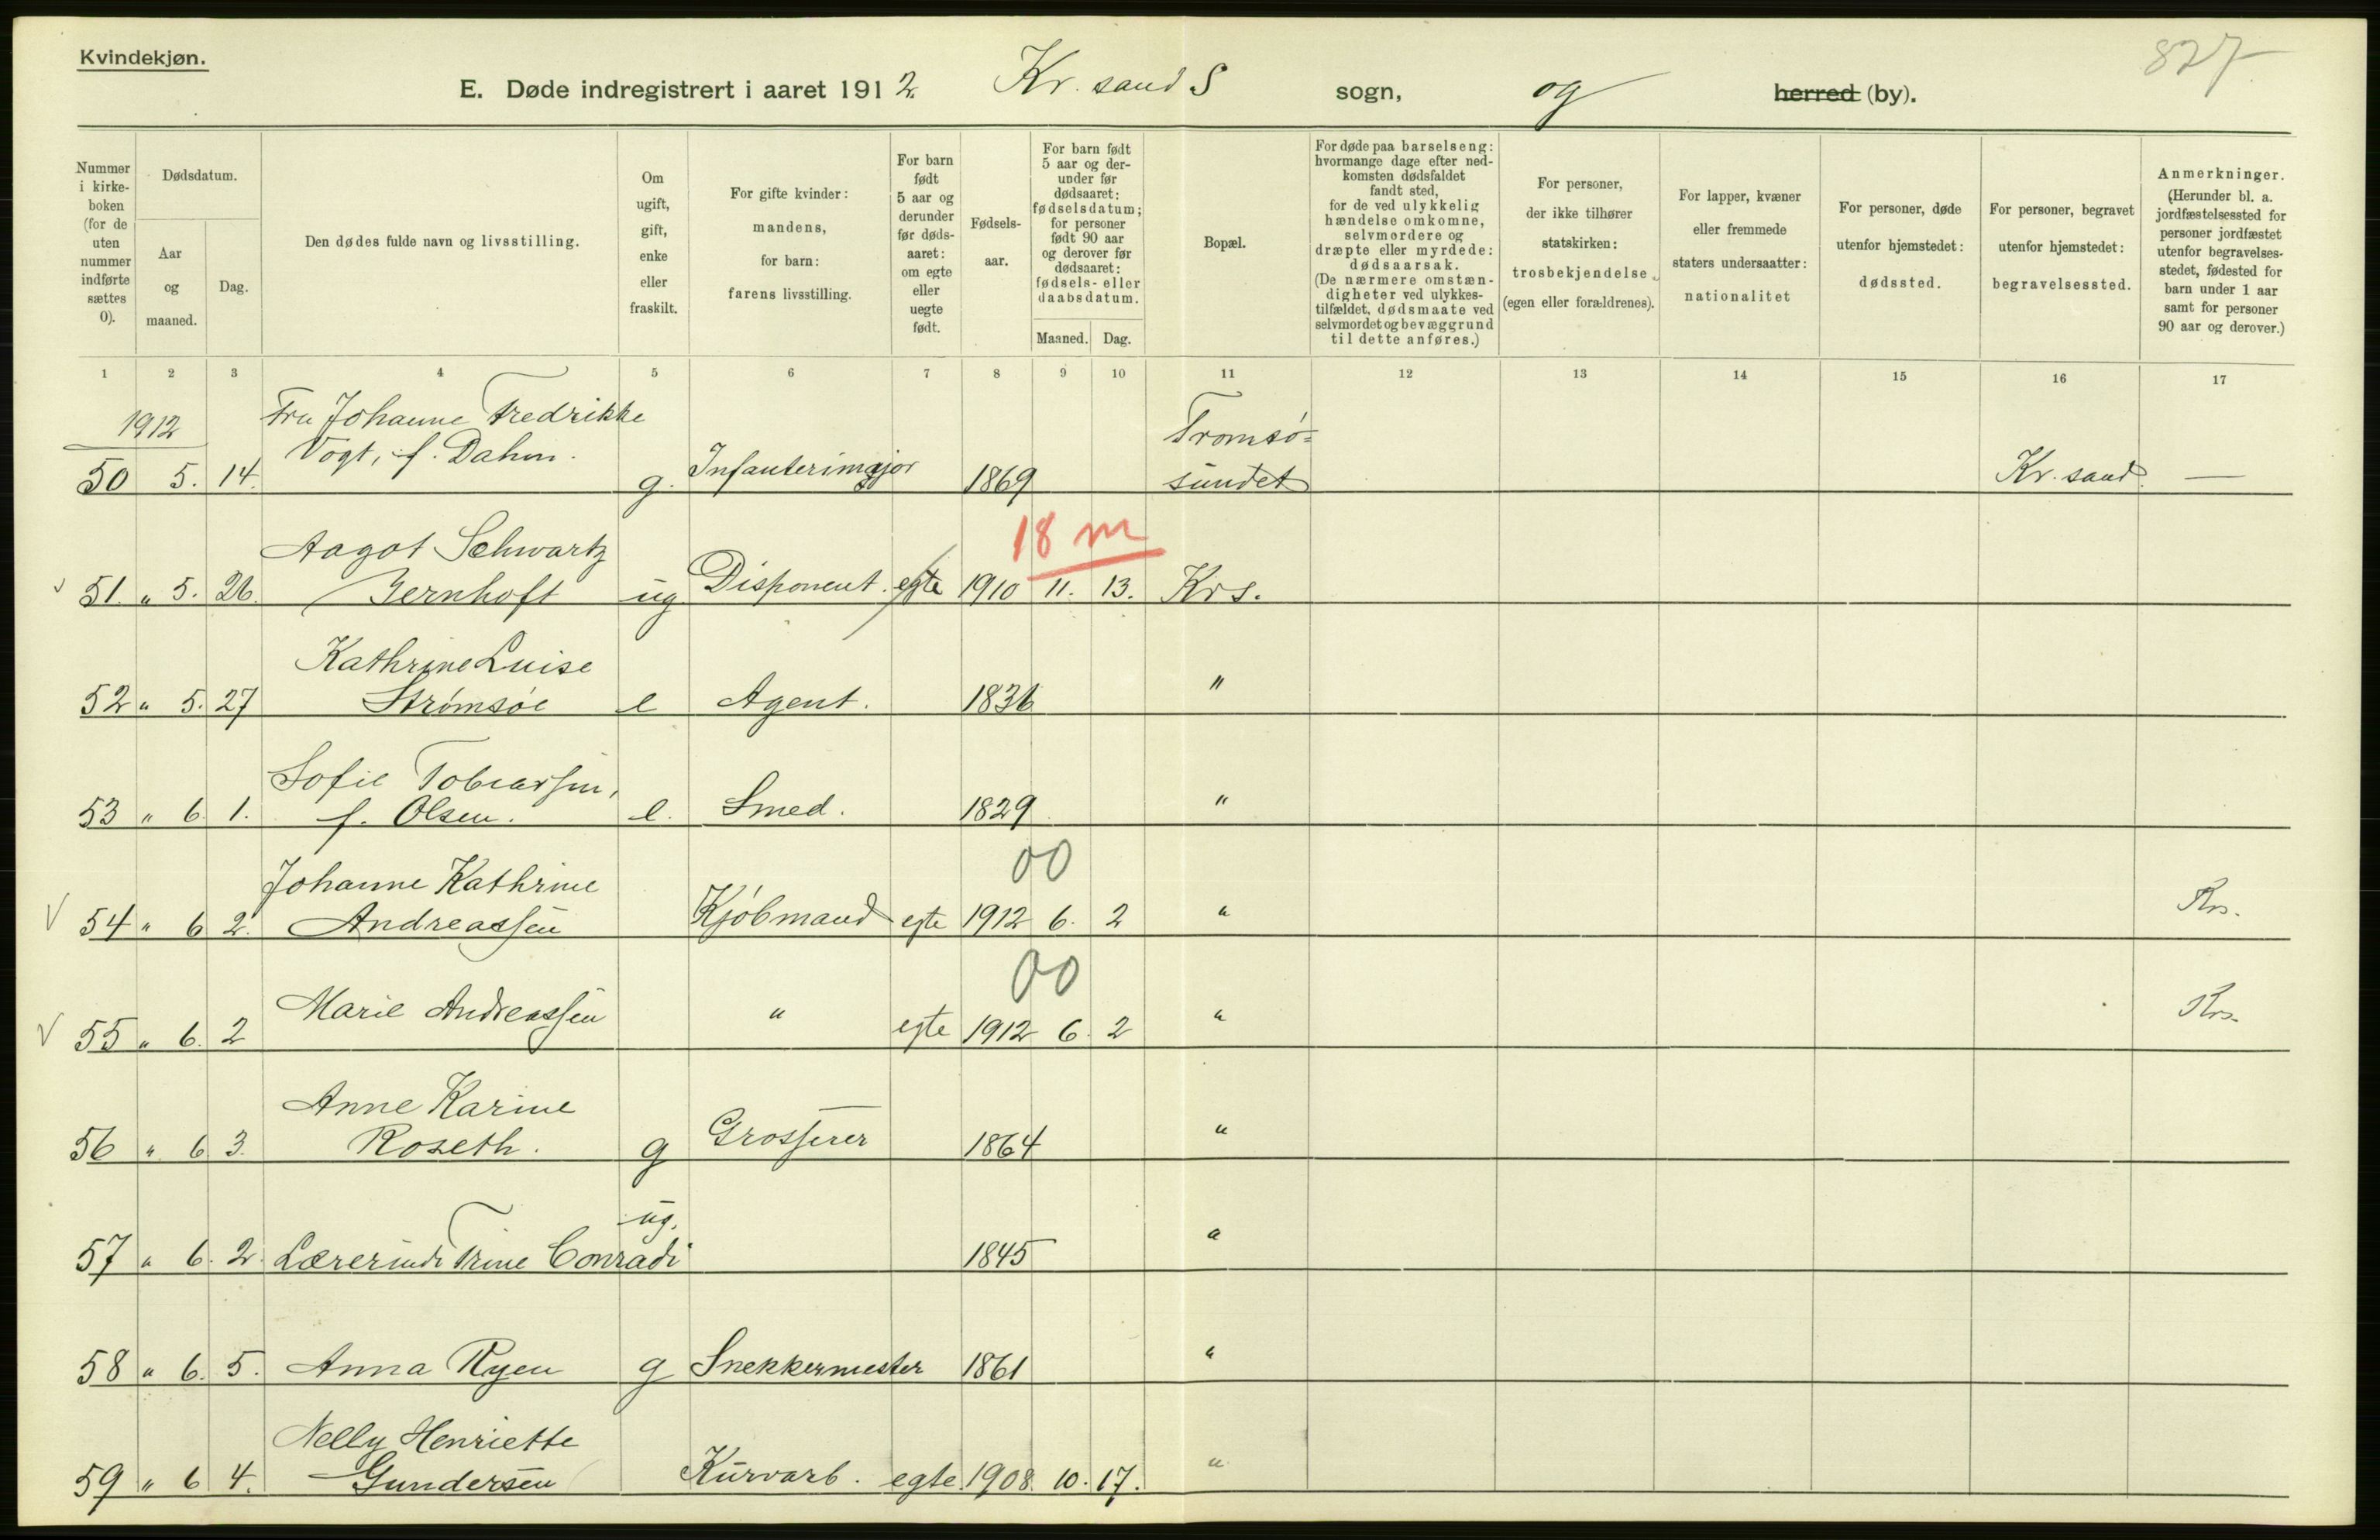 Kvindekjøn.
827
E. Døde indregistrert i aaret 1912 Kr. sand S sogn, og herred (by).
Nummer i kirke- boken (for de uten nummer indførte sættes 0).
Dødsdatum.
Aar og maaned.
Dag.
Den dødes fulde navn og livsstilling.
Om ugift, gift, enke eller fraskilt.
For gifte kvinder: mandens, for barn: farens livsstilling.
For barn født 5 aar og derunder før døds- aaret: om egte eller uegte født.
Fødsels- aar.
For barn født 5 aar og der- under før dødsaaret: fødselsdatum; for personer født 90 aar og derover før dødsaaret: fødsels- eller daabsdatum.
Maaned. Dag.
Bopæl.
For døde paa barselseng: hvormange dage efter ned- komsten dødsfaldet fandt sted, for de ved ulykkelig hændelse omkomne, selvmordere og dræpte eller myrdede: dødsaarsak. (De nærmere omstæn- digheter ved ulykkes- tilfældet, dødsmaate ved selvmordet og bevæggrund til dette anføres.)
For personer, der ikke tilhører statskirken: trosbekjendelse (egen eller forældrenes).
For lapper, kvæner eller fremmede staters undersaatter: nationalitet
For personer, døde utenfor hjemstedet: dødssted.
For personer, begravet utenfor hjemstedet: begravelsessted.
Anmerkninger. (Herunder bl. a. jordfæstelsessted for personer jordfæstet utenfor begravelses- stedet, fødested for barn under 1 aar samt for personer 90 aar og derover.)
1 2 3 4 5 6 7 8 9 10 11 12 13 14 15 16 17
1912 Fru Johanne Fredrikke Tromsø=
50 5. 14. Vogt, f. Dahm. g. Infanterimajor 1869 sundet Kr. sand. —
18 m
Aagot Schwartz
51. " 5. 26. Gernhoft ug Disponent. egte 1910 11. 13. Krs.
Kathrine Luise
52 " 5. 27 Strømsøe e Agent. 1836 "
Sofie Tobiassen,
53 " 6 1. f. Olsen. e. Smed. 1829 "
00
Johanne Kathrine
54 " 6 2. Andreassen Kjøbmand egte 1912 6. 2 " Krs.
00
55 " 6. 2 Marie Andreassen " egte 1912 6. 2 " Krs.
Anne Karine
56 " 6 3. Roseth. g Grosserer 1864 "
ug.
57 " 6. 2. Lærerinde Trine Conradi 1845 "
58 " 6. 5. Anna Ryen g Snekkermester 1861 "
Nelly Henriette
59 " 6 4. Gundersen Kurvarb. egte 1908. 10. 17. "